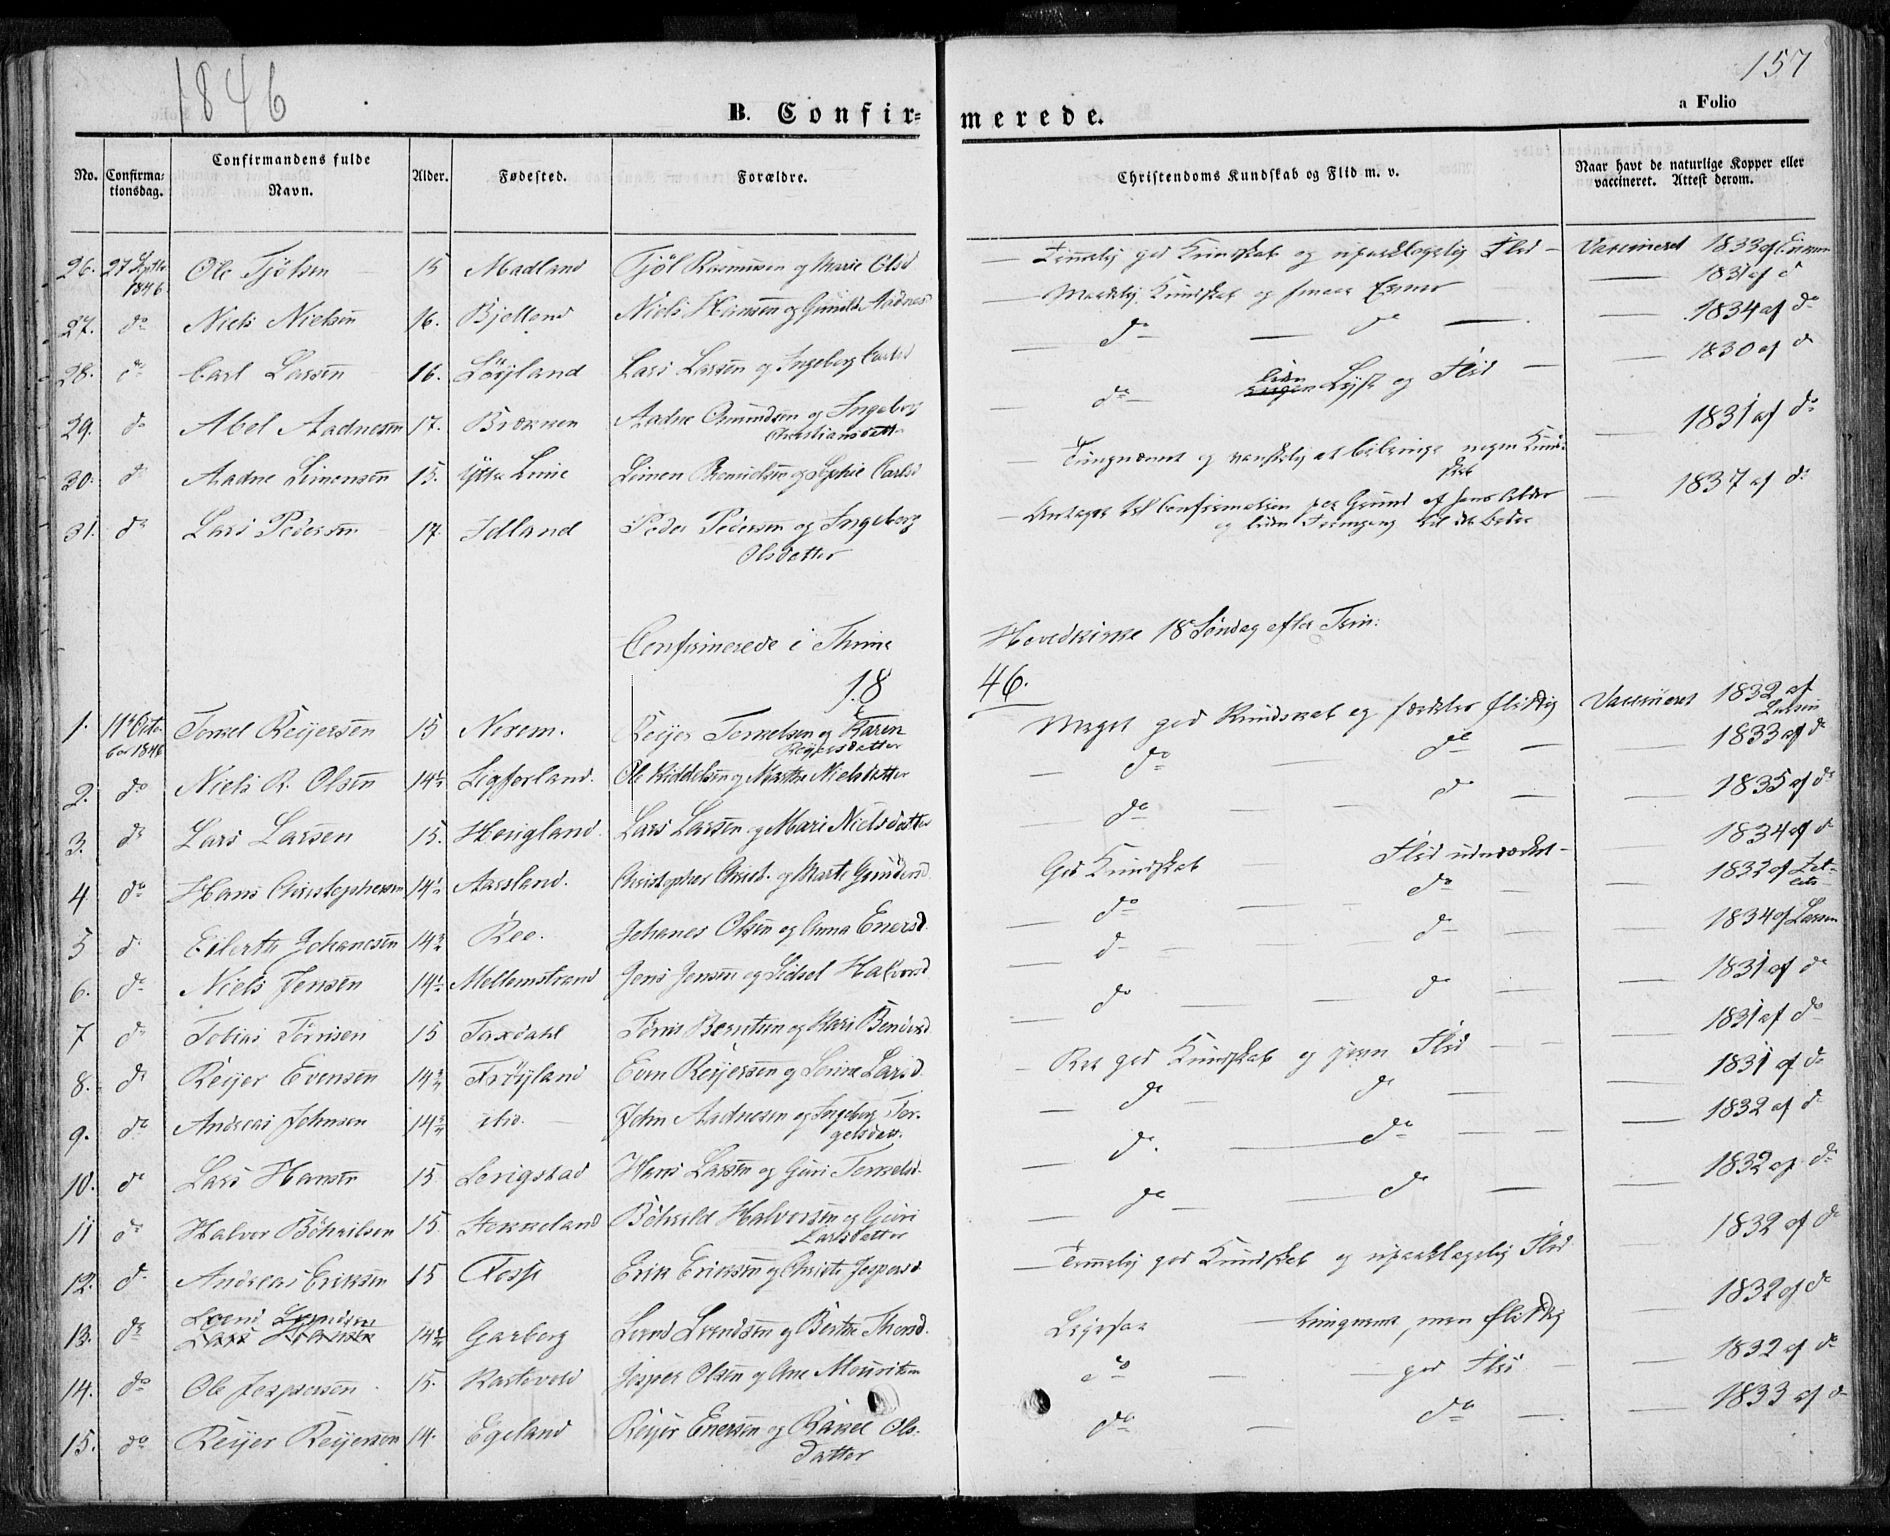 1846
157
B. Confirmerede.
a Folio
No. Confirmationsdag. Confirmandens fulde Navn. Alder. Fødested. Forældre. Christendoms Kundskab og Flid m. v. Naar havt de naturlige Kopper eller vaccineret. Attest derom.
26. 27 Septbr 1846 Ole Tjölsen 15 Madland Tjöl Rasmusen og Marie Olsd Temmelig god Kundskab og upaaklagelig Flid — Vaccineret 1833 af
27. do Niels Nielsen 16. Bjelland Niels Hansen og Gunilde Aadnes — Maadelig Kundskab og smaa Evner — 1831 af d
28. do Carl Larsen 16. Löyland Lars Larsen og Ingeborg Carlsd — do — do — 1834 af do
29. do Abel Aadnesen 17. Brekken Aadne Omundsen og Ingeborg Christiansdatter — do liden Lyst og Flid — 1830 af d
30. d Aadne Simonsen 15. Ytre Lime Simon og Sophie Carlsd — Tungnemet og vanskelig at bibringe nogen Kundskab — 1831 af do
31. do Lars Pedersen 17. Idland Peder Pedersen og Ingeborg Olsdatter — Antages til Confirmation paa Grund af hans Alder og liden Fremgang til det bedre — 1837 af do
Confirmerede i Thime Hovedkirke 18 Söndag efter Trin:
1846.
1. 11te October 1846 Torkel Reijersen 15 Norem. Reijer Torkelsen og Karen Reijersdatter Meget god Kundskab og særdeles flittig Vaccineret 1832 af Larsen
2. do Niels R. Olsen 14½ Ole Kiddelsen og Marthe Nielsdatter — do do — 1833 af do
3. do Lars Larsen 15. Hougland Lars Larsen og Mari Nielsdatter — do — d — 1835 af do
4 do Hans Christophersen 14½ Aarsland. Christopher Christ. og Marte Gundersd God Kundskab Flid udmærket — 1834 af do
5 d Eilerth Johanesen 14¾ Ree. Johanes Olsen og Anna Enersd. — do — do — 1832 af
6. do Niels Jensen 14½ Mellemstrand Jens Jensen og Sidsel Halvorsd — d — d — 1834 af Larsen
7 do Tobias Törrisen 15 Taxdahl Törris Berntsen og Kari Bendixd — do — d — 1831 af do
8. d Reijer Evensen 14¾ Fröyland Even Reijersen og Serine Larsd. — Ret god Kundskab og jevn Flid — 1831 af do
9. do Andreas Johnsen 14¾ ibid. John Aadnesen og Ingeborg Torgelsdatt. — do — do — 1831 af do
10. do Lars Hansen 15 Serigstad Hans Larsen og Guri Torkelsd. — d. — do — 1832 af d
11 do Halvor Böhrilsen 15. Stokkeland Böhrild Halvorsen og Guri Larsdatter — do — do — 1832 af do
12. d. Andreas Eriksen 15 Fosse Erik Eriksen og Christi Jespersd. — Temmelig god Kundskab og upaaklagelig Flid — 1832 af do
13. do Svend Svendsen 14¾ Garborg Svend Svendsen og Berthe Thorsd. Ligesaa — tungnemt, men flittig — 1832 af do
14. do Ole Jespersen 15. Kartevold Jesper Olsen og Ane Mouritsen do — god Flid — 1832 af do
15. do Reijer Reijersen 14. Egeland Reijer Enersen og Rakel Olsdatter do — do — 1833 af d